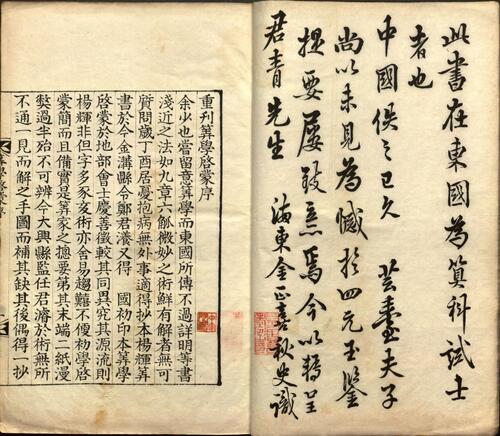 此書在東國為筭科試士
者也
中國佚之已久 芸臺夫子
尚以未見為憾於四元玉鑒
提要屢致意焉今以轉呈
君青先生 海東金正喜秋史識
重刊筭學啓蒙序
余少也嘗留意筭學而東國所傳不過詳明等書
淺近之法如九章六觚微妙之術鮮有解者無可
質問歲丁酉居憂抱病無外事適得抄本楊輝筭
書於今金溝縣令鄭君養又得 國初印本筭學
啓蒙於地部會士慶善徵較其同異究其源流則
楊輝非但字多豕亥術亦舍易趨難不便初學啓
蒙簡而且備實是筭家之摠要第其末端二紙漫
獘過半殆不可辨今大興縣監任君濬於術無所
不通一見而解之手圖而補其缺其後偶得一抄